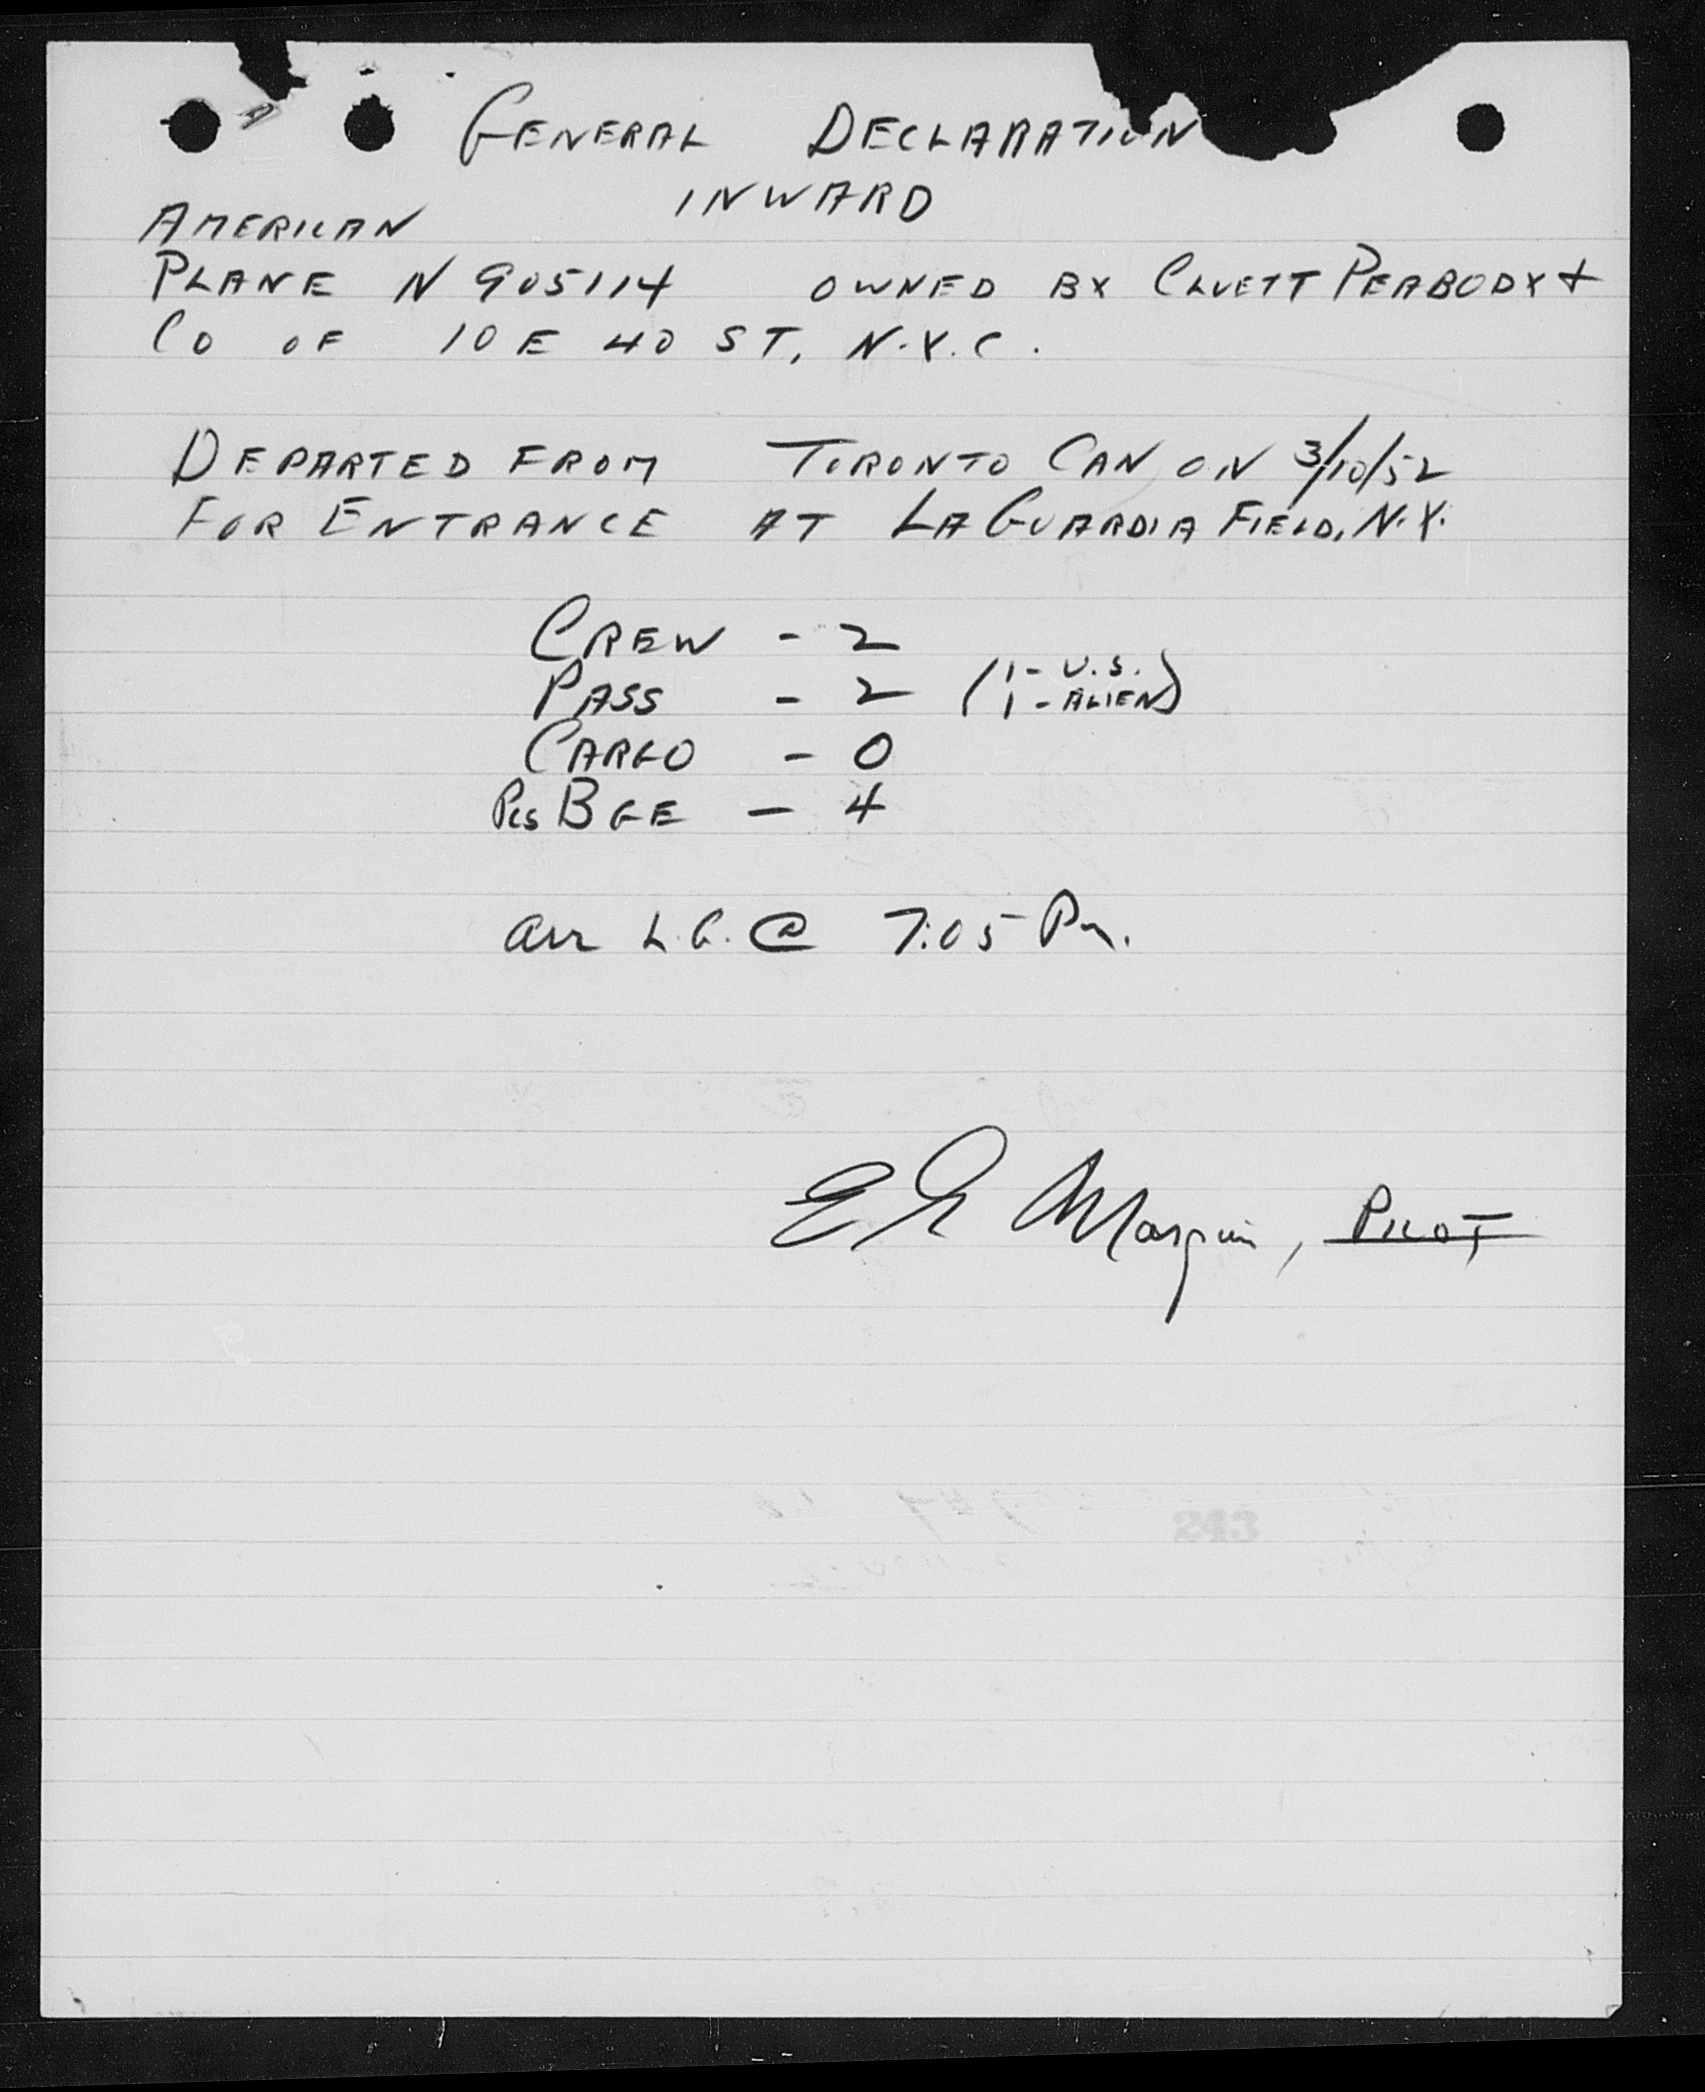 GENERAL DECLARATION
INWARD
AMERICAN
PLANE N 905114 OWNED BY CLUETT PEABODY +
CO OF 10 E 40 ST, N.Y.C.
DEPARTED FROM TORONTO CAN ON 3/10/52
FOR ENTRANCE AT LA GUARDIA FIELD, N.Y.
CREW - 2
PASS - 2 (1 - U.S.
1 - ALIEN)
CARGO - 0
Pcs BGE - 4
arr L.G. @ 7:05 Pm.
PILOT
243